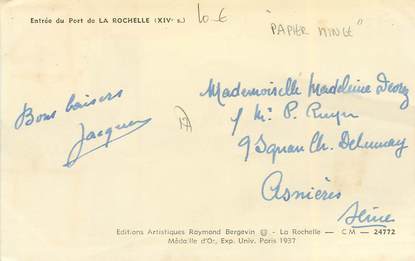 Entrée du Port de LA ROCHELLE (XIVᵉ s.)
10 €
"PAPIER MINCE"
Bons baisers
Jacques
17
Mademoiselle Madeleine
Mr P.
9 Square Ch. Delaunay
Asnières
Seine
Editions Artistiques Raymond Bergevin - La Rochelle — C M — 24772
Médaille d'Or, Exp. Univ. Paris 1937